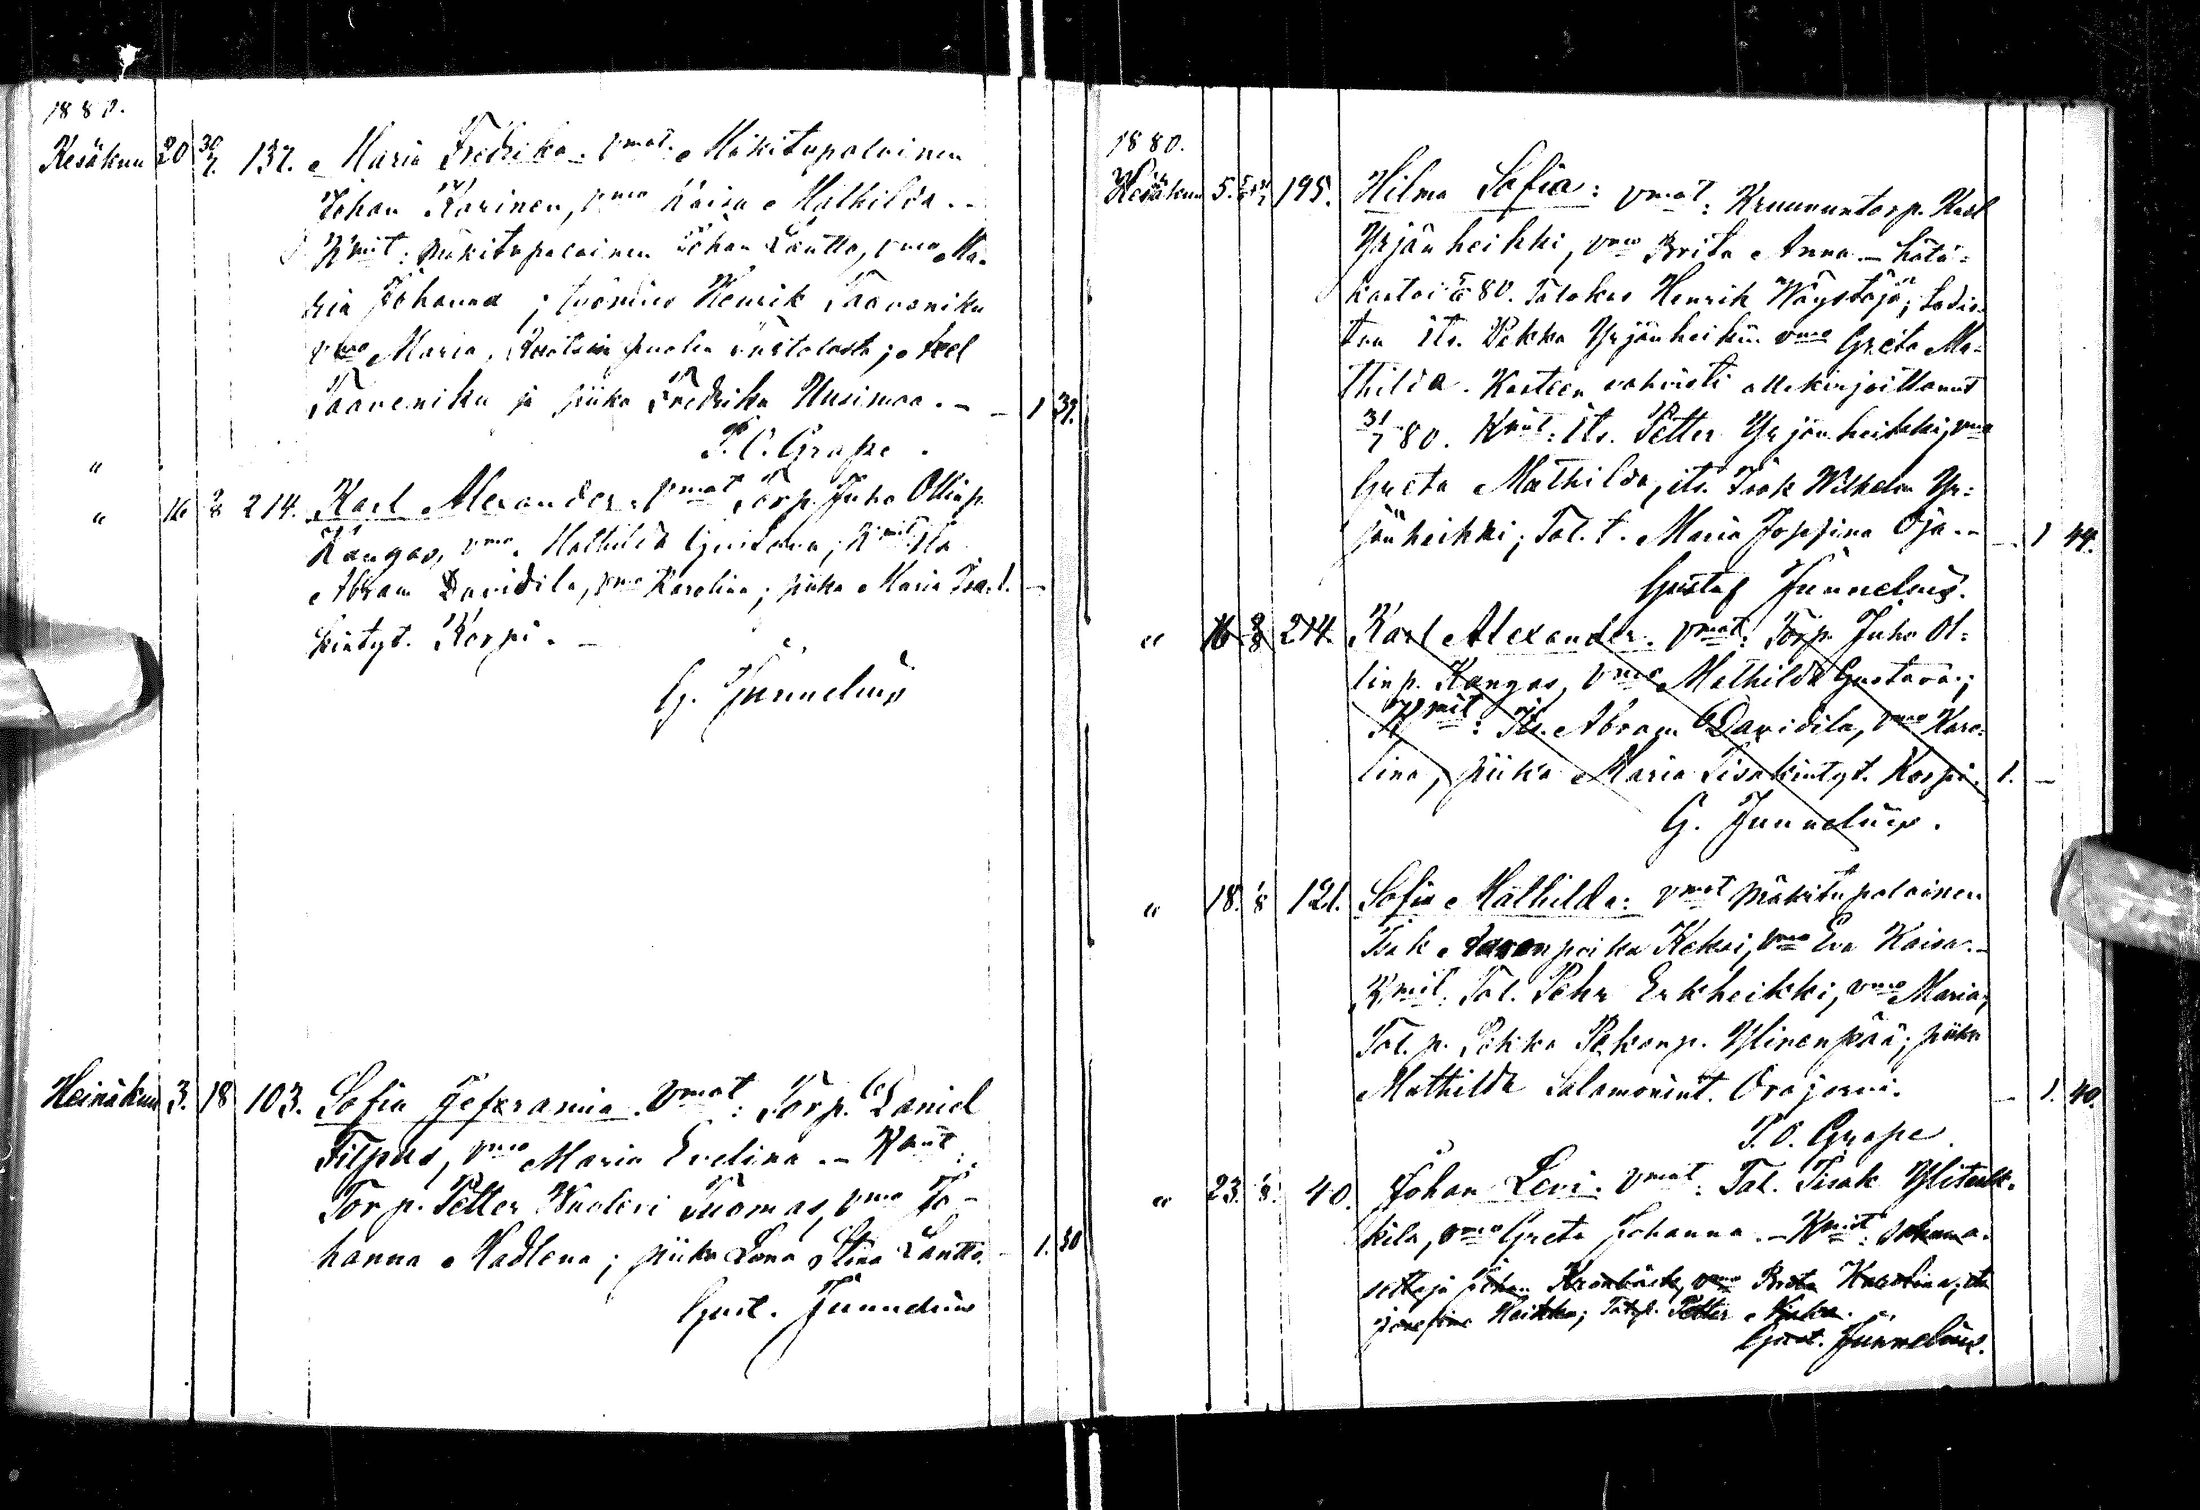 1880.
Kesäkuu 20 30/7. 137. Maria Fredrika. Vmat. Mäkitupalainen
Johan Karinen, vmo Kaisa Mathilda. -
Kmit: mäkitupalainen Johan Lantto, vmo Ma-
ria Johanna; Henrik Taaveniku
vmo Maria, Ruotsin puolen Axel
Taaveniku ja piika Fredrika Uusimaa. - - 1 37.
P. O. Grape.
"
" 16 2/8 214. Karl Alexander. Vmat Torp. Juho Ollinp.
Kangas, vmo. Mathilda Gustava; Kmit Its.
Abram Davidila, vmo Karolina; piika Maria Isa- 1. -
kintyt. Korpi. -
G. Junnelius
Heinäkuu 3. 18 103. Sofia Vmat: Torp. Daniel
Filpus, vmo Maria Evelina. - Kmit:
Torp. Petter Tuomas, vmo Jo-
hanna Madlena; piika Lena Stina Lantto. - 1. 30
Gust. Junnelius
1880.
Kesäkuu 5. 195. Hilma Sofia: Vmat: Kruununtorp. Karl
Yrjänheikki, vmo Brita Anna - hätä-
kastoi 5/6 80. Talokas Henrik Väystäjä; todis-
taa its. Pekka Yrjänheikin vmo Greta Ma-
thilda. Kasteen vahvisti allekirjoittanut
31/7 80. Kmit: its. Petter Yrjänheikki, vmo
Greta Mathilda, its. Isak Wilhelm Yr-
jänheikki; Tal. t. Maria Josefina Oja. - - 1 44.
Gustaf Junnelius.
" 16 2/8 214. Karl Alexander. Vmat: Torp. Juho Ol-
linp. Kangas, vmo Mathilda Gustava;
Kmit: Its. Abram Davidila, vmo Karo-
lina, piika Maria Iisakintyt. Korpi. 1. -
G. Junnelius.
" 18. 1/8 121. Sofia Mathilda: Vmat mäkitupalainen
Isak Aaronpoika Keksi, vmo Eva Kaisa. -
Kmit: Tal. Pehr Erkheikki, vmo Maria;
Tal. p. Pekka Pekanp. Ylinenpää; piika
Mathilda Salamonint. Orajärvi. - 1. 40.
P. O. Grape.
" 23. 1/8. 40. Johan Levi. Vmat: Tal. Iisak Ylitulk-
kila, vmo Greta Johanna. - Kmit:
settaja Johan vmo Brita Karolina;
Josefina Heikka; Talp. Petter
Gust. Junnelius.